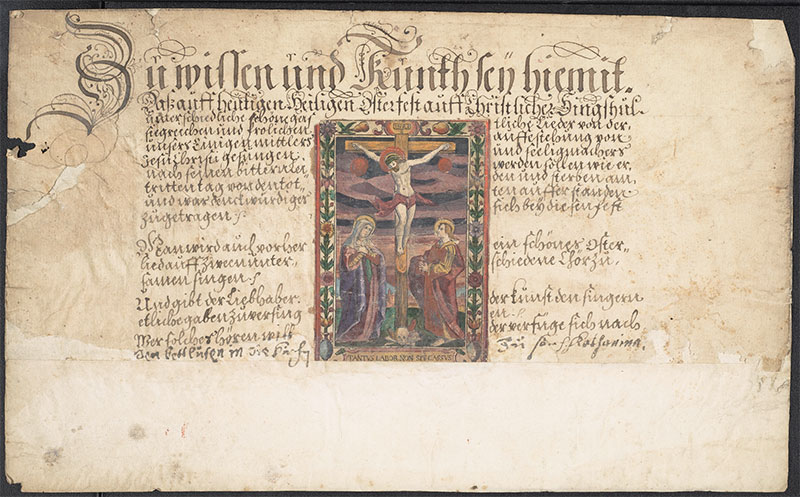 Zu wissen und Kunth seÿ hiemit.
Daß auff heutigen Heiligen Osterfest auff Christlicher Singshul
unterschiedliche schöne gei stliche Lieder von der
siegreichen und frölichen aufferstehung von
unsers Einigen mittlers und seeligmachers
Jesu Christi gesungen, werden sollen wie er
nach seinen bittern lei den und sterben am
tritten tag von den tot„ ten aufferstanden
und war denckwürdiges sich beÿ diesen fest
zugetragen.
Man wird auch vorher ein schönes Oster„
lied auff zween unter„ schiedene Chör zu„
samen singen.
Und gibt der Liebhaber der kunst den singern
etliche gaben zuversing en.
Wer solches hören will der verfüge sich nach
zu Katharina.
TANTVS LABOR NON SIT CASSVS